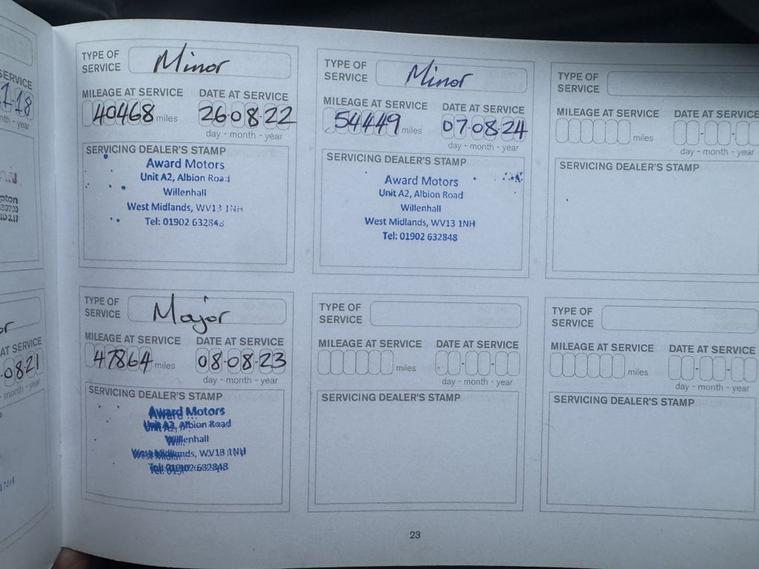 SERVICE
1-18
nth - year
pton
or
AT SERVICE
0821
nth - year
TYPE OF SERVICE Minor
MILEAGE AT SERVICE DATE AT SERVICE
40468 miles 26-08-22
day - month - year
SERVICING DEALER'S STAMP
Award Motors
Unit A2, Albion Road
Willenhall
West Midlands, WV13 1NH
Tel: 01902 632848
TYPE OF SERVICE Minor
MILEAGE AT SERVICE DATE AT SERVICE
54449 miles 07-08-24
day - month - year
SERVICING DEALER'S STAMP
Award Motors
Unit A2, Albion Road
Willenhall
West Midlands, WV13 1NH
Tel: 01902 632848
TYPE OF SERVICE
MILEAGE AT SERVICE DATE AT SERVICE
miles
day - month - year
SERVICING DEALER'S STAMP
TYPE OF SERVICE Major
MILEAGE AT SERVICE DATE AT SERVICE
47864 miles 08-08-23
day - month - year
SERVICING DEALER'S STAMP
Award Motors
Unit A2, Albion Road
Willenhall
West Midlands, WV13 1NH
Tel: 01902 632848
TYPE OF SERVICE
MILEAGE AT SERVICE DATE AT SERVICE
miles
day - month - year
SERVICING DEALER'S STAMP
TYPE OF SERVICE
MILEAGE AT SERVICE DATE AT SERVICE
miles
day - month - year
SERVICING DEALER'S STAMP
23